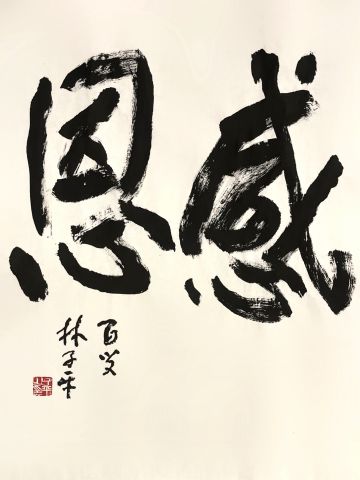 感恩
百叟
林子平